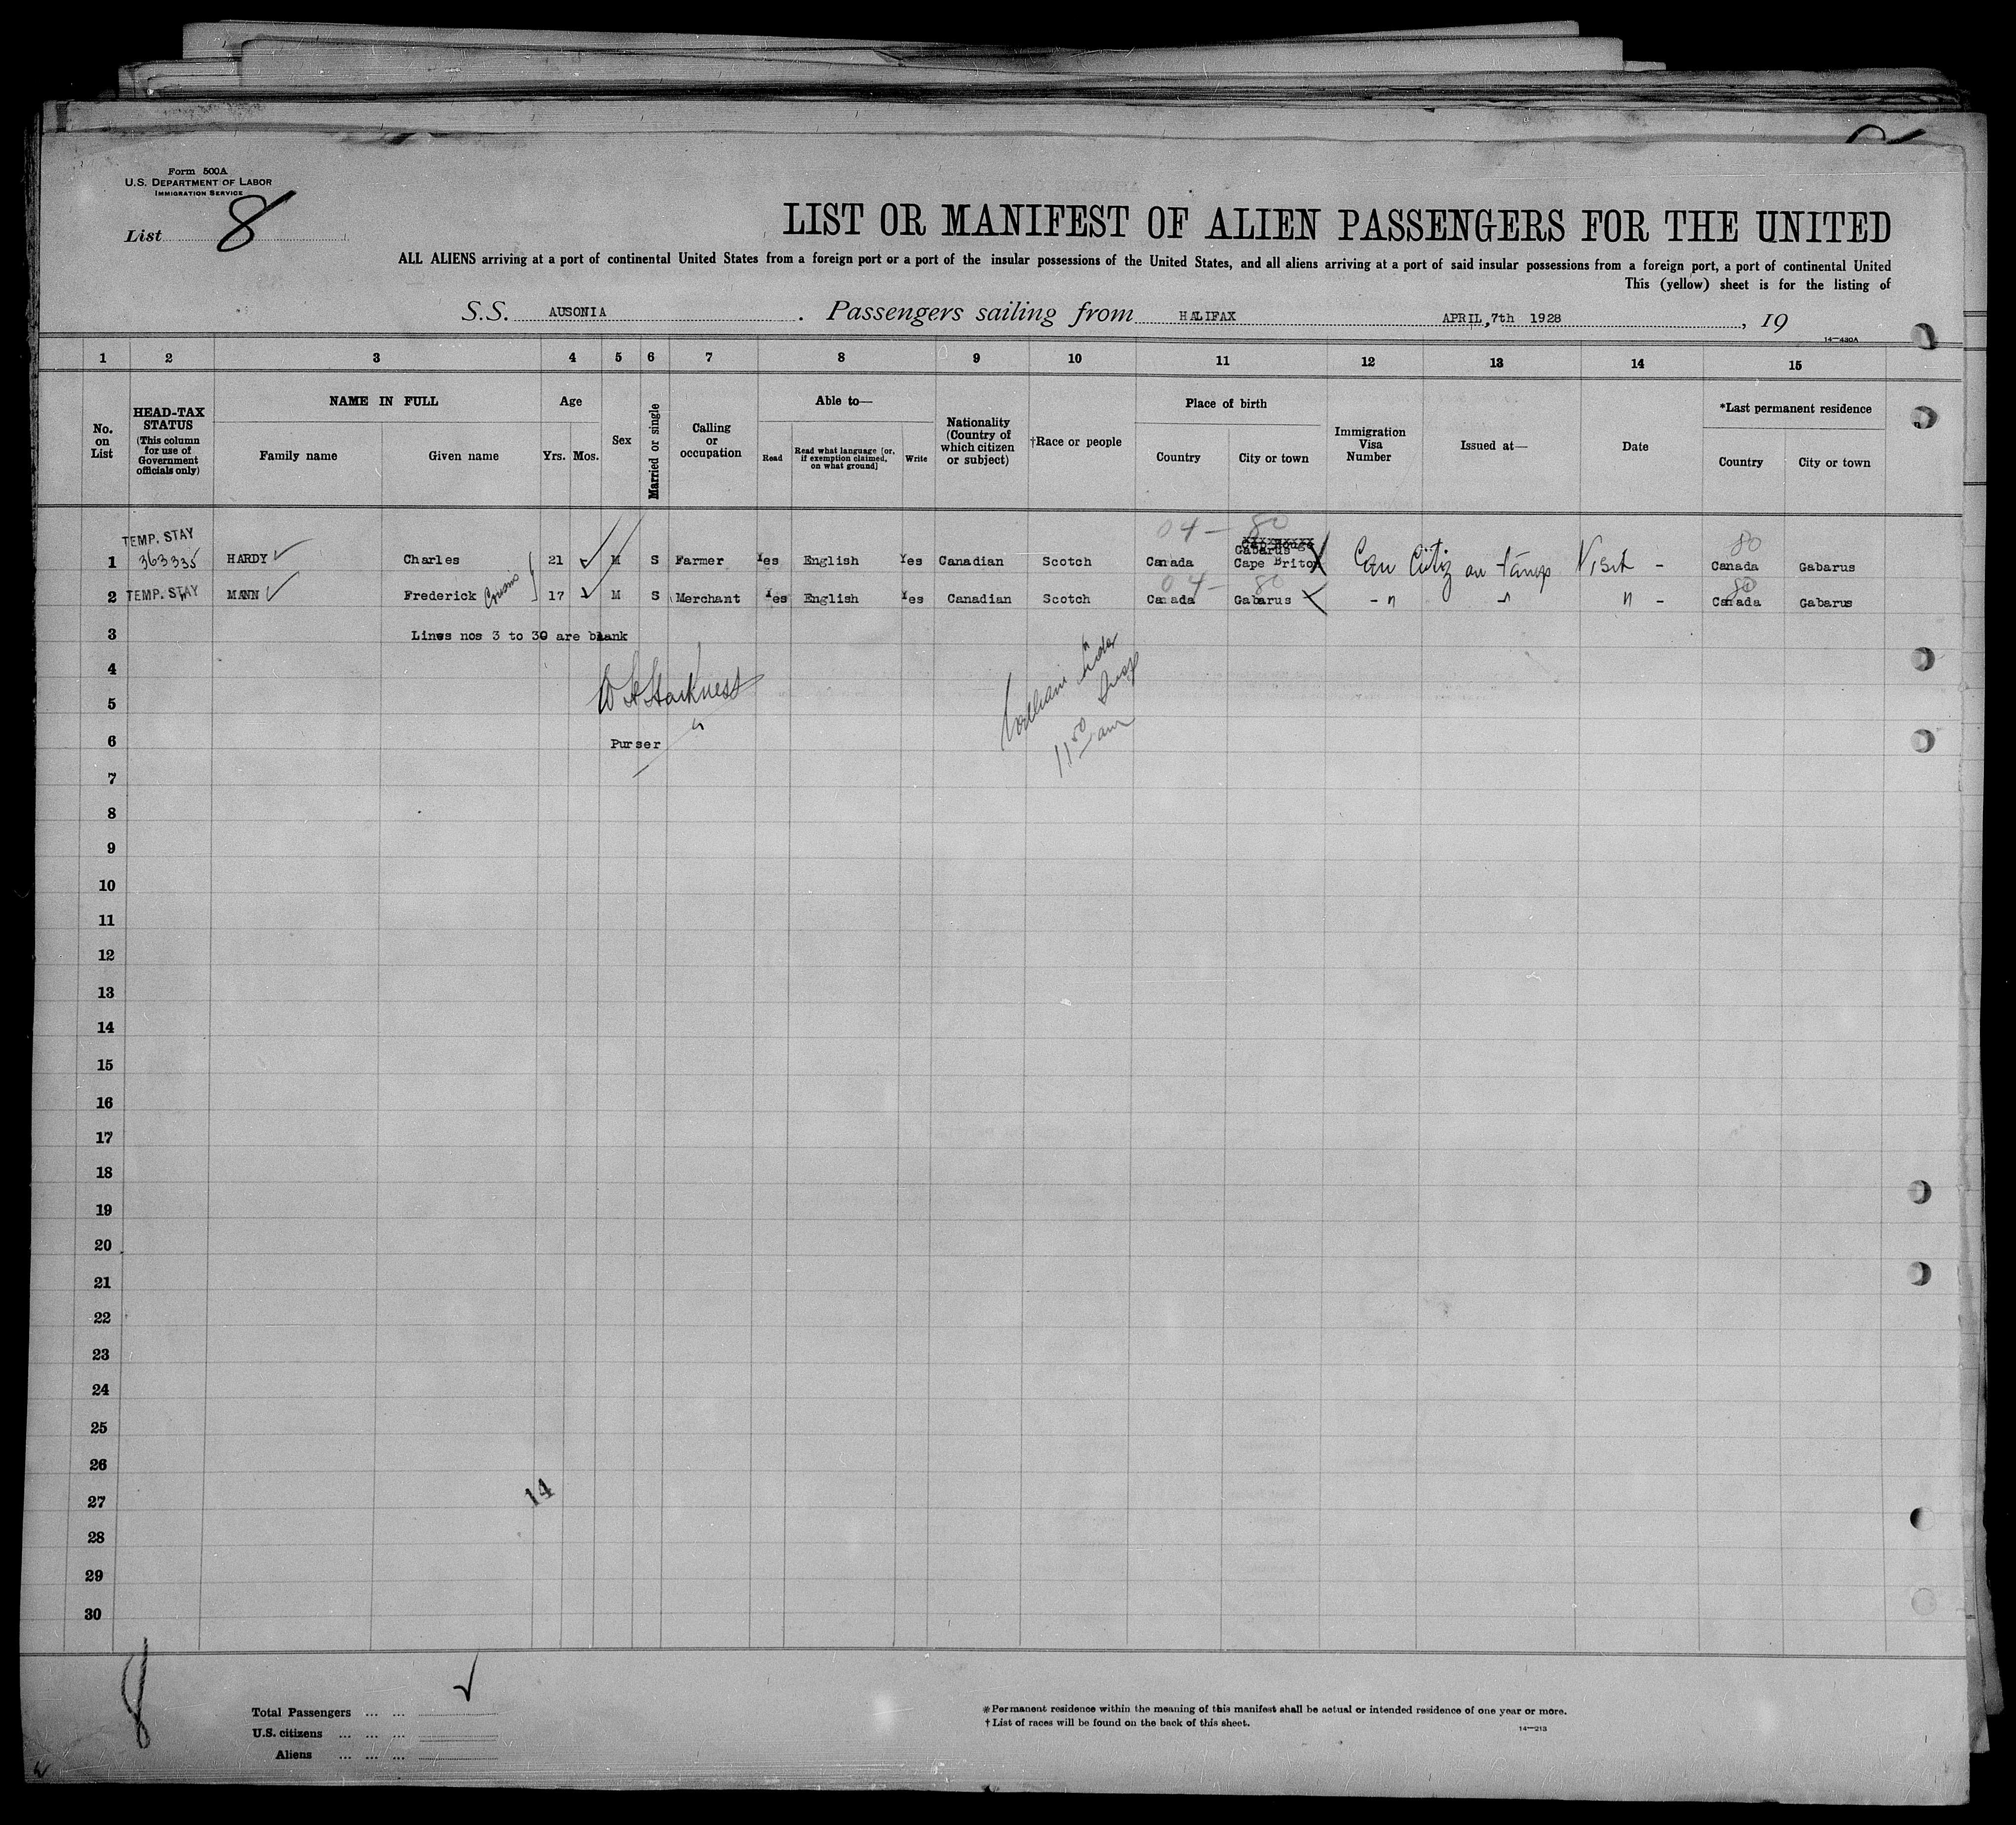 Form 500A
U.S. DEPARTMENT OF LABOR
IMMIGRATION SERVICE
List 8
LIST OR MANIFEST OF ALIEN PASSENGERS FOR THE UNITED
ALL ALIENS arriving at a port of continental United States from a foreign port or a port of the insular possessions of the United States, and all aliens arriving at a port of said insular possessions from a foreign port, a port of continental United
This (yellow) sheet is for the listing of
S.S. AUSONIA . Passengers sailing from HALIFAX APRIL,7th 1928 , 19
14—430A
1 2 3 4 5 6 7 8 9 10 11 12 13 14 15
No. on List
HEAD-TAX STATUS (This column for use of Government officials only)
NAME IN FULL
Family name Given name
Age
Yrs. Mos.
Sex
Married or single
Calling or occupation
Able to—
Read Read what language [or, if exemption claimed, on what ground] Write
Nationality (Country of which citizen or subject)
†Race or people
Place of birth
Country City or town
Immigration Visa Number
Issued at—
Date
*Last permanent residence
Country City or town
04 - 80 80
TEMP. STAY
1 363335 HARDY Charles 21 M S Farmer Yes English Yes Canadian Scotch Canada Gabarus Cape Briton Can Citiz on temp Visit - Canada Gabarus
04 - 80 80
2 TEMP. STAY MANN Frederick Cousins 17 M S Merchant Yes English Yes Canadian Scotch Canada Gabarus - " " " - Canada Gabarus
3 Lines nos 3 to 30 are blank
4
W Harkness
5
6 Purser
11 50 am
7
8
9
10
11
12
13
14
15
16
17
18
19
20
21
22
23
24
25
26
27
14
28
29
30
8
Total Passengers ... ...
U.S. citizens ... ... ...
Aliens ... ... ...
*Permanent residence within the meaning of this manifest shall be actual or intended residence of one year or more.
†List of races will be found on the back of this sheet.
14—213